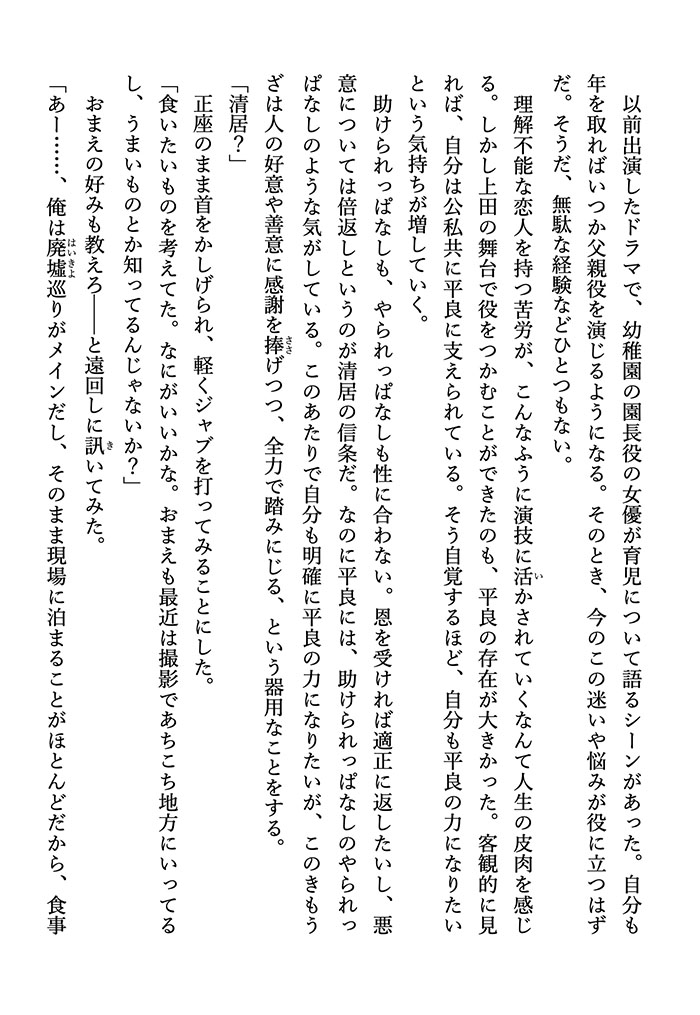 以前出演したドラマで、幼稚園の園長役の女優が育児について語るシーンがあった。自分も
年を取ればいつか父親役を演じるようになる。そのとき、今のこの迷いや悩みが役に立つはず
だ。そうだ、無駄な経験などひとつもない。
理解不能な恋人を持つ苦労が、こんなふうに演技に活かされていくなんて人生の皮肉を感じ
る。しかし上田の舞台で役をつかむことができたのも、平良の存在が大きかった。客観的に見
れば、自分は公私共に平良に支えられている。そう自覚するほど、自分も平良の力になりたい
という気持ちが増していく。
助けられっぱなしも、やられっぱなしも性に合わない。恩を受ければ適正に返したいし、悪
意については倍返しというのが清居の信条だ。なのに平良には、助けられっぱなしのやられっ
ぱなしのような気がしている。このあたりで自分も明確に平良の力になりたいが、このきもう
ざは人の好意や善意に感謝を捧げつつ、全力で踏みにじる、という器用なことをする。
「清居？」
正座のまま首をかしげられ、軽くジャブを打ってみることにした。
「食いたいものを考えてた。なにがいいかな。おまえも最近は撮影であちこち地方にいってる
し、うまいものとか知ってるんじゃないか？」
おまえの好みも教えろ――と遠回しに訊いてみた。
「あー……、俺は廃墟巡りがメインだし、そのまま現場に泊まることがほとんどだから、食事